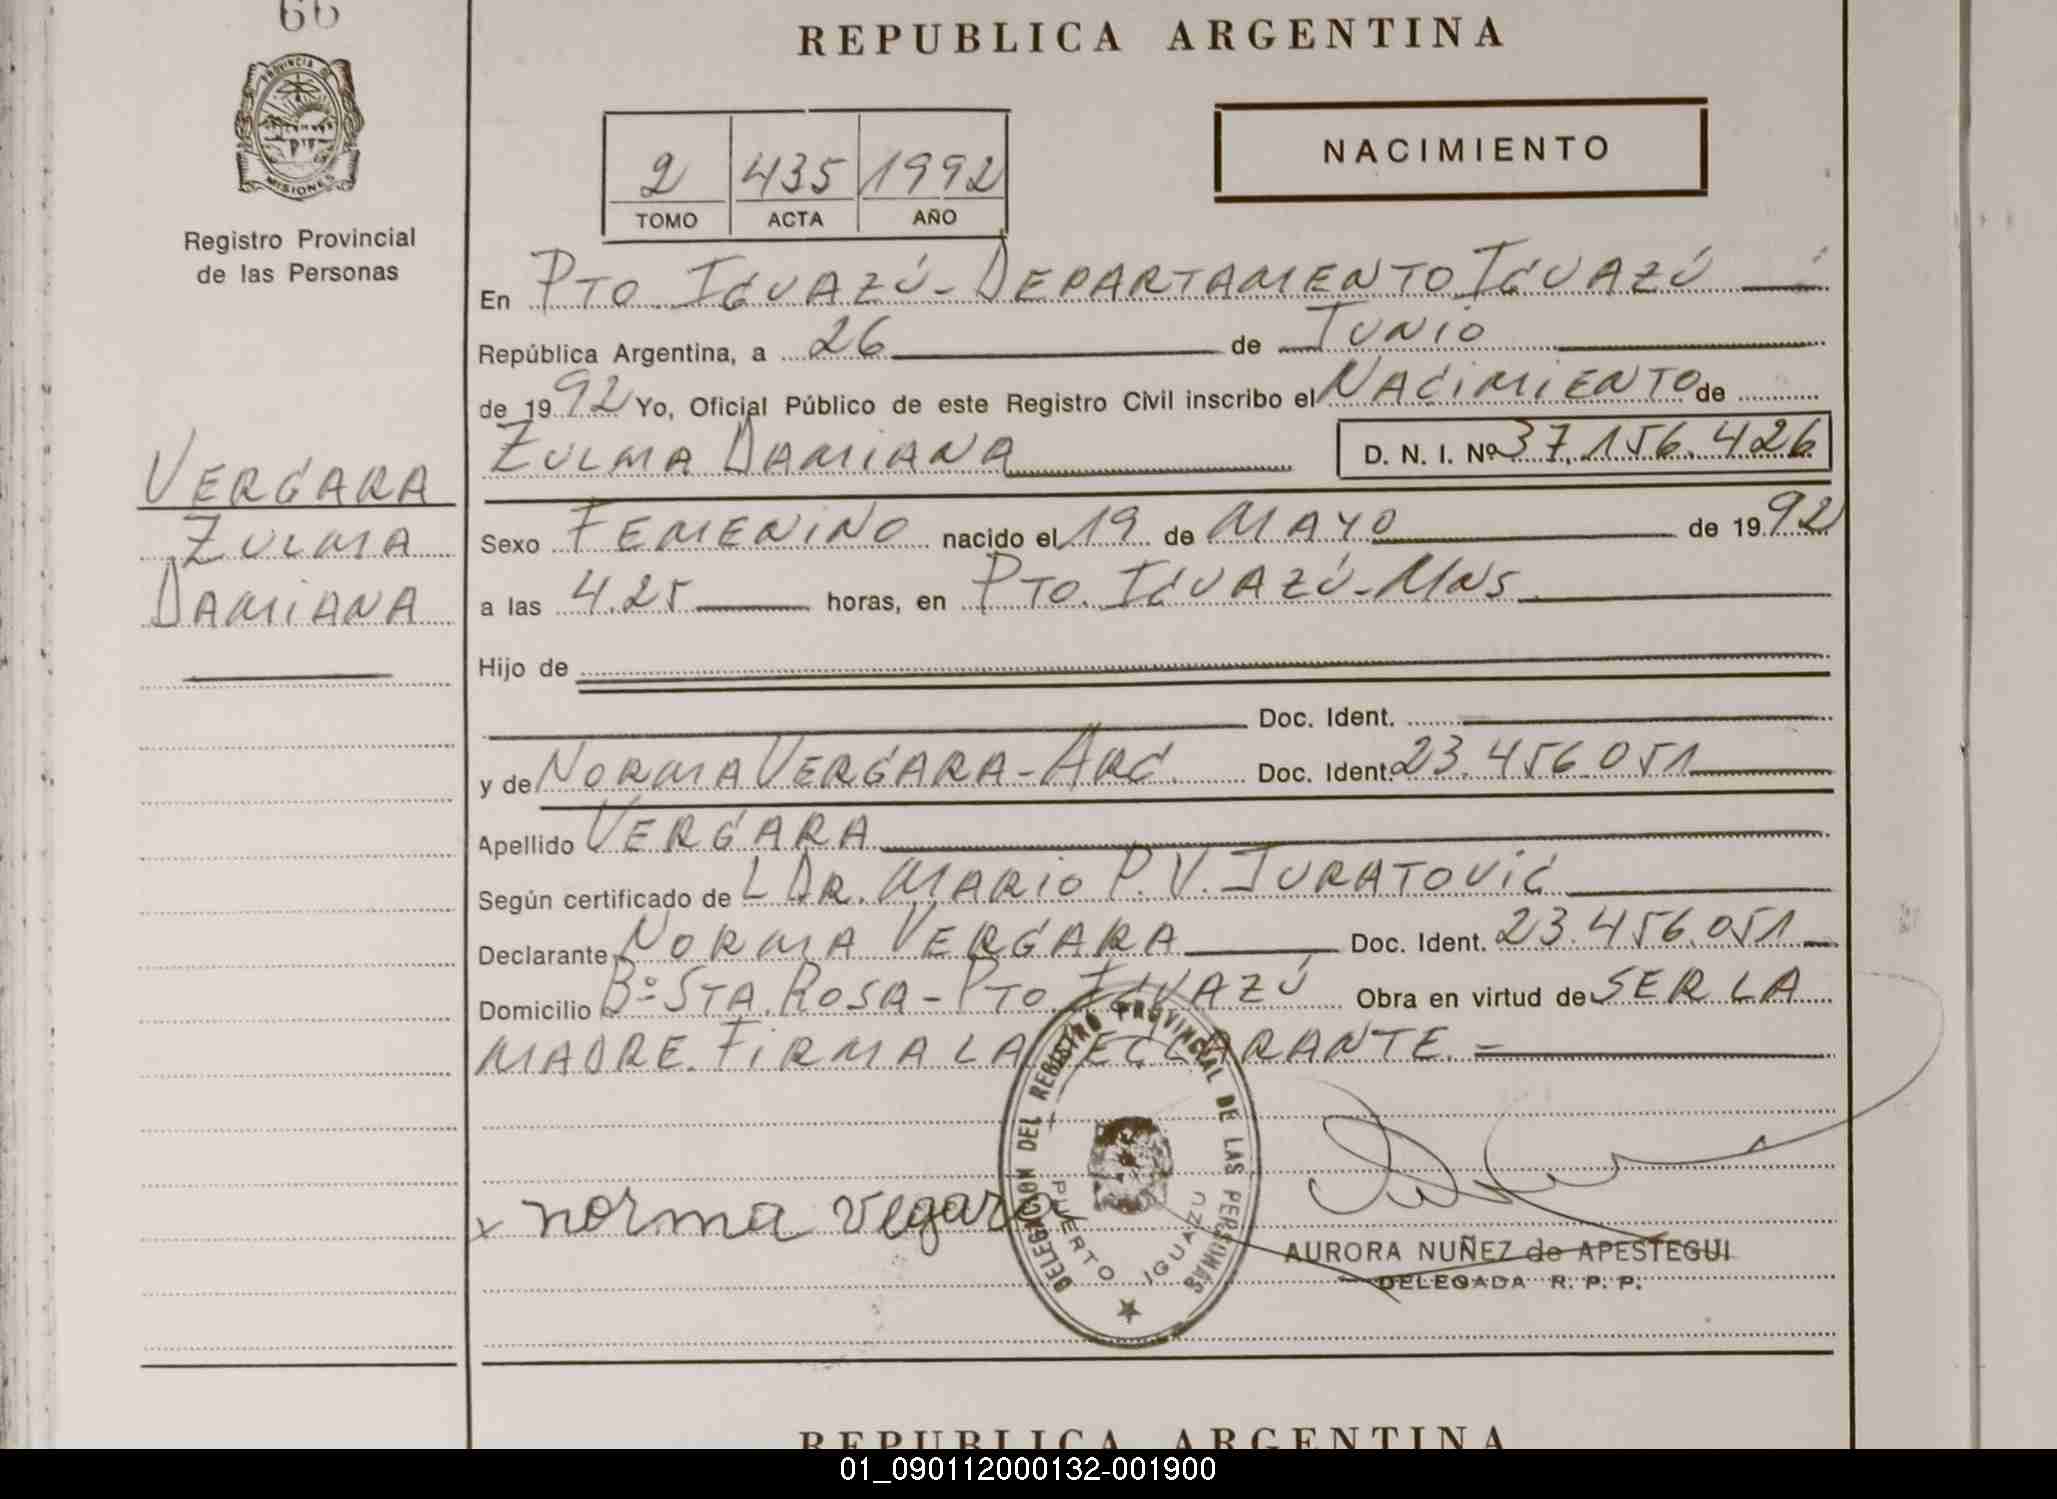 66
REPUBLICA ARGENTINA
PROVINCIA DE
MISIONES
Registro Provincial
de las Personas
2 435 1992
TOMO ACTA AÑO
NACIMIENTO
En PTO. IGUAZÚ - DEPARTAMENTO IGUAZÚ
República Argentina, a 26 de JUNIO
de 1992 Yo, Oficial Público de este Registro Civil inscribo el NACIMIENTO de
ZULMA DAMIANA D. N. I. Nº 37.156.426
VERGARA
ZULMA
DAMIANA
Sexo FEMENINO nacido el 19 de MAYO de 1992
a las 4.25 horas, en PTO. IGUAZÚ - MNS
Hijo de
Doc. Ident.
y de NORMA VERGARA - ARG. Doc. Ident. 23.456.051
Apellido VERGARA
Según certificado de L DR. MARIO P. V. JURATOVIC
Declarante NORMA VERGARA Doc. Ident. 23.456.051
Domicilio Bº STA. ROSA - PTO. IGUAZÚ Obra en virtud de SER LA
MADRE. FIRMA LA DECLARANTE. =
DELEGACION DEL REGISTRO PROVINCIAL DE LAS PERSONAS
PUERTO IGUAZU
x norma vegara
AURORA NUÑEZ de APESTEGUI
DELEGADA R. P. P.
REPUBLICA ARGENTINA
01_090112000132-001900